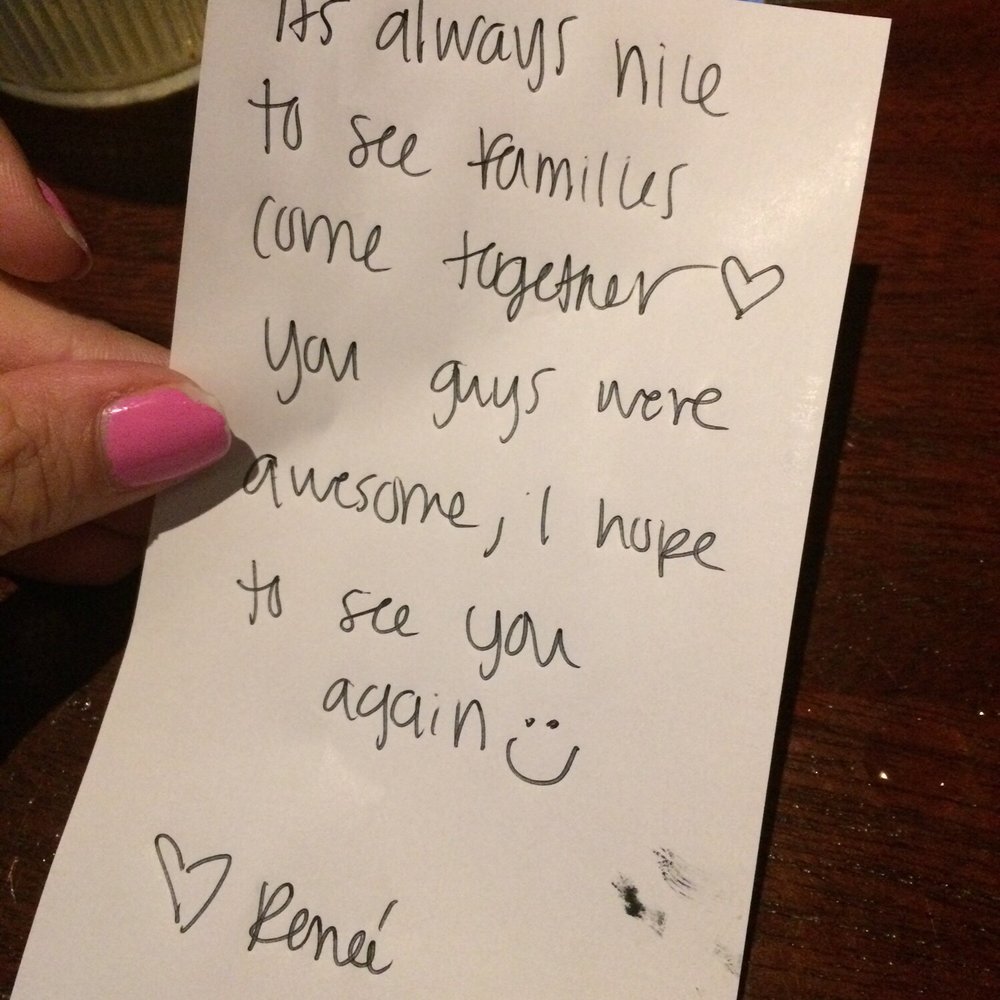 Its always nice
to see families
come together ♡
you guys were
awesome, I hope
to see you
again :)
♡ Reneé